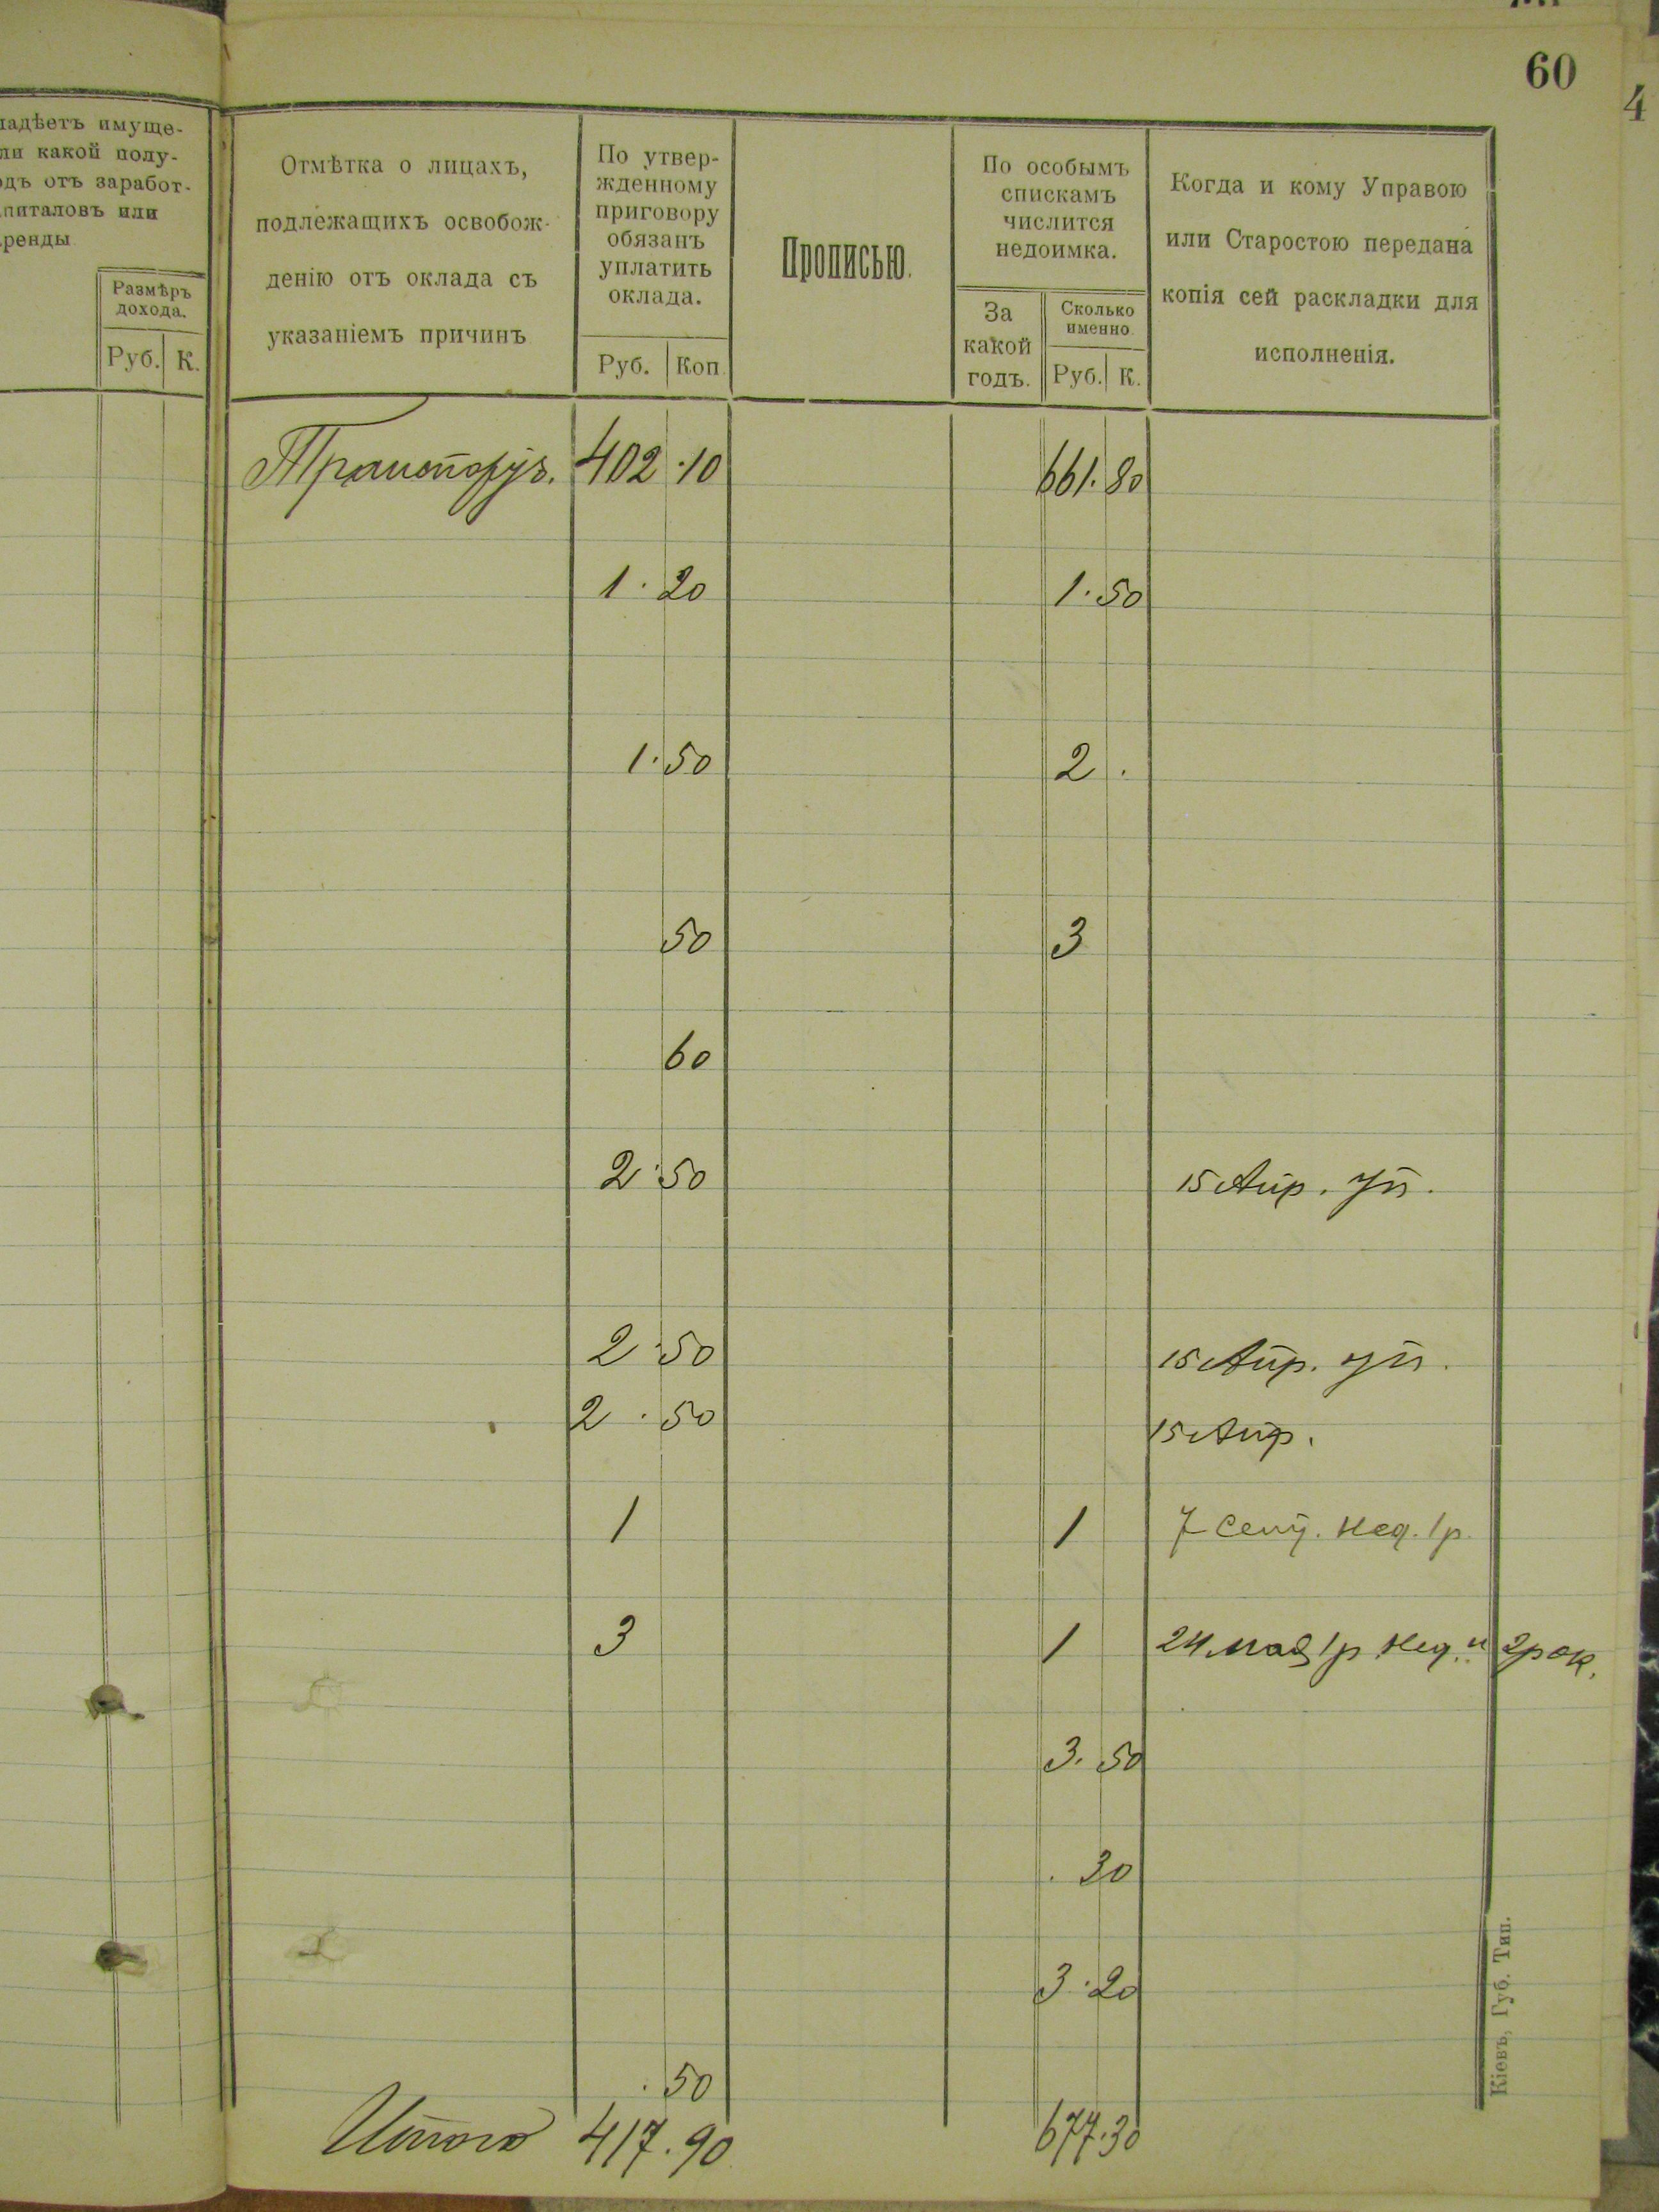 60
4
ладѣетъ имуще-
ли какой полу-
одъ отъ заработ-
апиталовъ или
аренды
Размѣръ
дохода.
Руб. К.
Отмѣтка о лицахъ,
подлежащихъ освобож-
денію отъ оклада съ
указаніемъ причинъ
По утвер-
жденному
приговору
обязанъ
уплатить
оклада.
Руб. Коп.
Прописью.
По особымъ
спискамъ
числится
недоимка.
За
какой
годъ.
Сколько
именно.
Руб. К.
Когда и кому Управою
или Старостою передана
копія сей раскладки для
исполненія.
402.10 661.80
1.20 1.50
1.50 2.
50 3
60
2.50 15 Апр. уп.
2.50 15 Апр. уп.
2.50 15 Апр.
1 1 7 Сент. нед. 1 р.
3 1 24 мая 1 р нед. и 2 р ок.
3.50
.30
3.20
.50
Итого 417.90 677.30
Кіевъ, Губ. Тип.